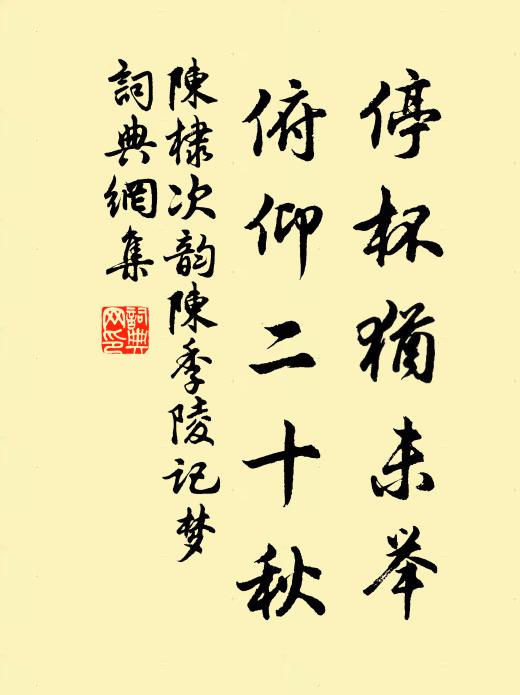 停杯犹未举
俯仰二十秋
陳棣次韵陳季陵记梦
詞典網集
詞典网印